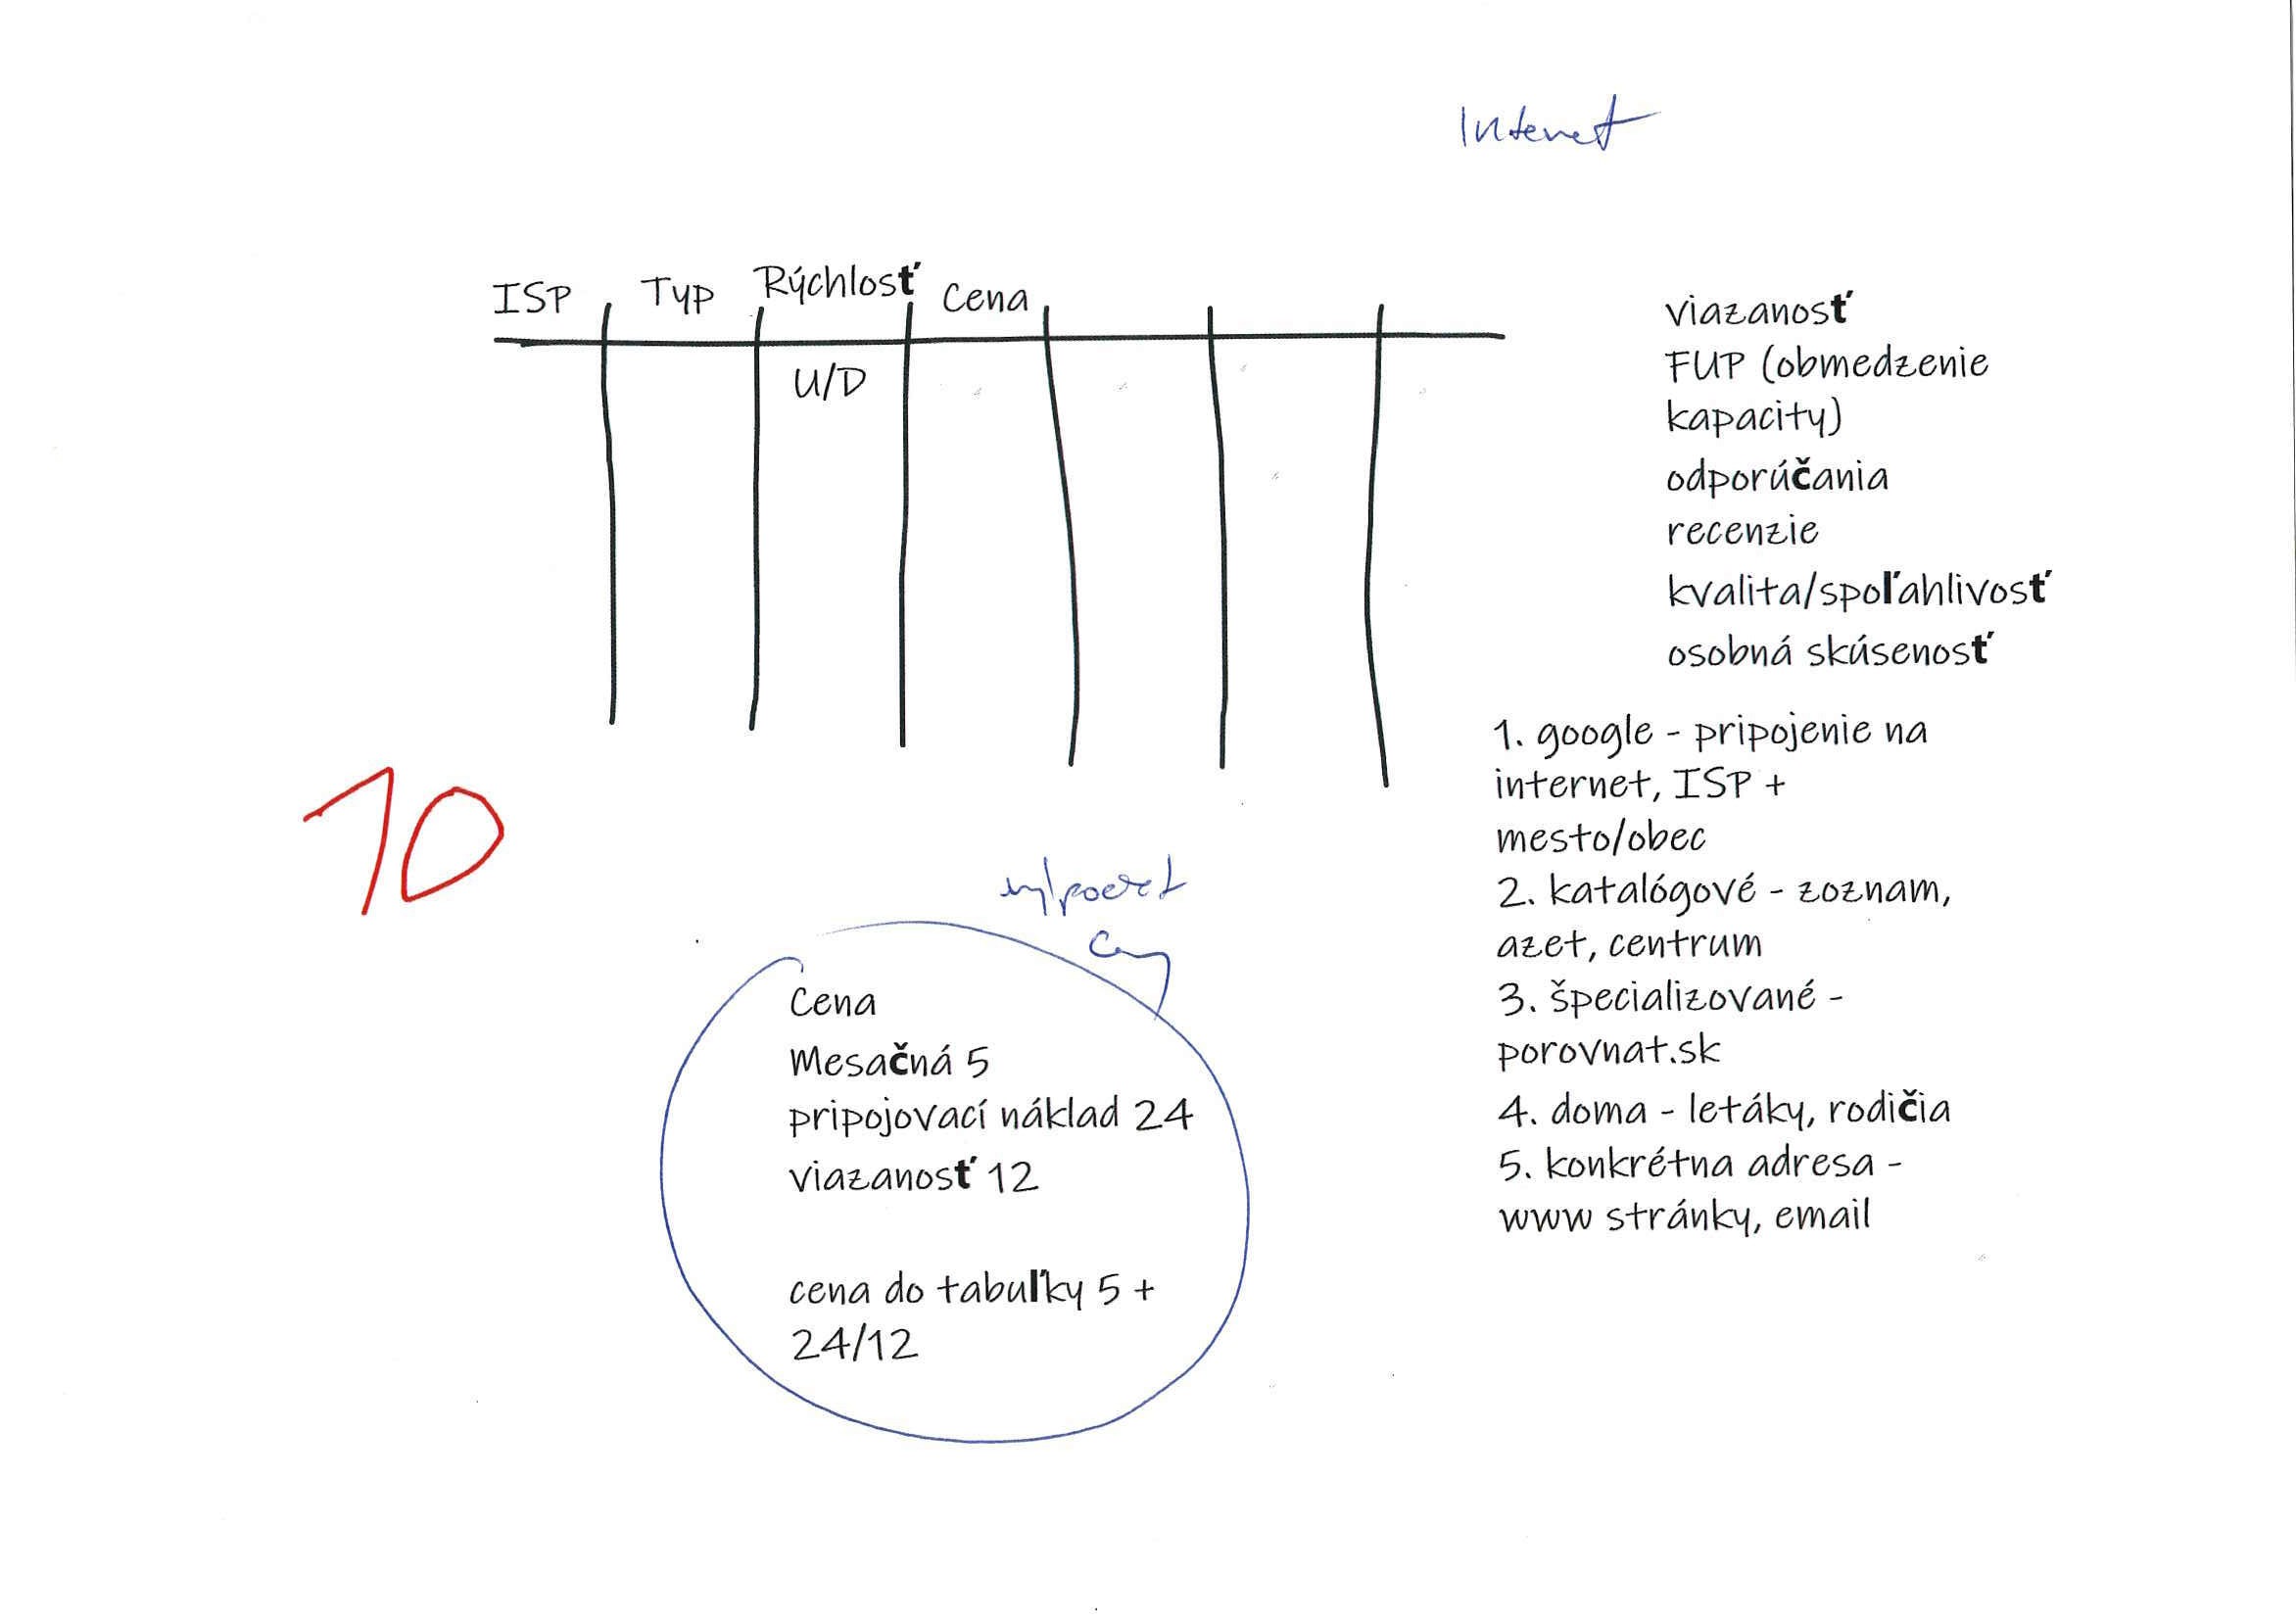 Internet
ISP Typ Rýchlosť Cena
U/D
viazanosť
FUP (obmedzenie
kapacity)
odporúčania
recenzie
kvalita/spoľahlivosť
osobná skúsenosť
1. google - pripojenie na
internet, ISP +
mesto/obec
2. katalógové - zoznam,
azet, centrum
3. špecializované -
porovnat.sk
4. doma - letáky, rodičia
5. konkrétna adresa -
www stránky, email
10
výpočet
ceny
Cena
Mesačná 5
pripojovací náklad 24
viazanosť 12
cena do tabuľky 5 +
24/12